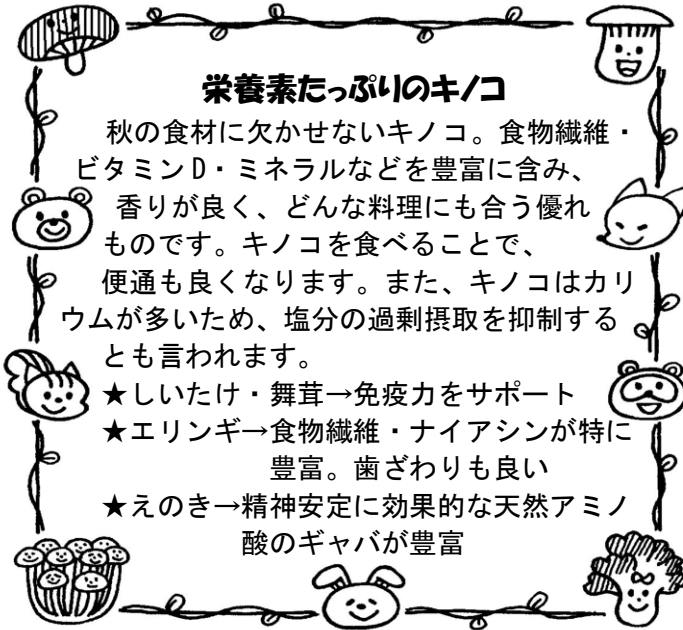 栄養素たっぷりのキノコ
秋の食材に欠かせないキノコ。食物繊維・
ビタミンD・ミネラルなどを豊富に含み、
香りが良く、どんな料理にも合う優れ
ものです。キノコを食べることで、
便通も良くなります。また、キノコはカリ
ウムが多いため、塩分の過剰摂取を抑制する
とも言われます。
★しいたけ・舞茸→免疫力をサポート
★エリンギ→食物繊維・ナイアシンが特に
豊富。歯ざわりも良い
★えのき→精神安定に効果的な天然アミノ
酸のギャバが豊富